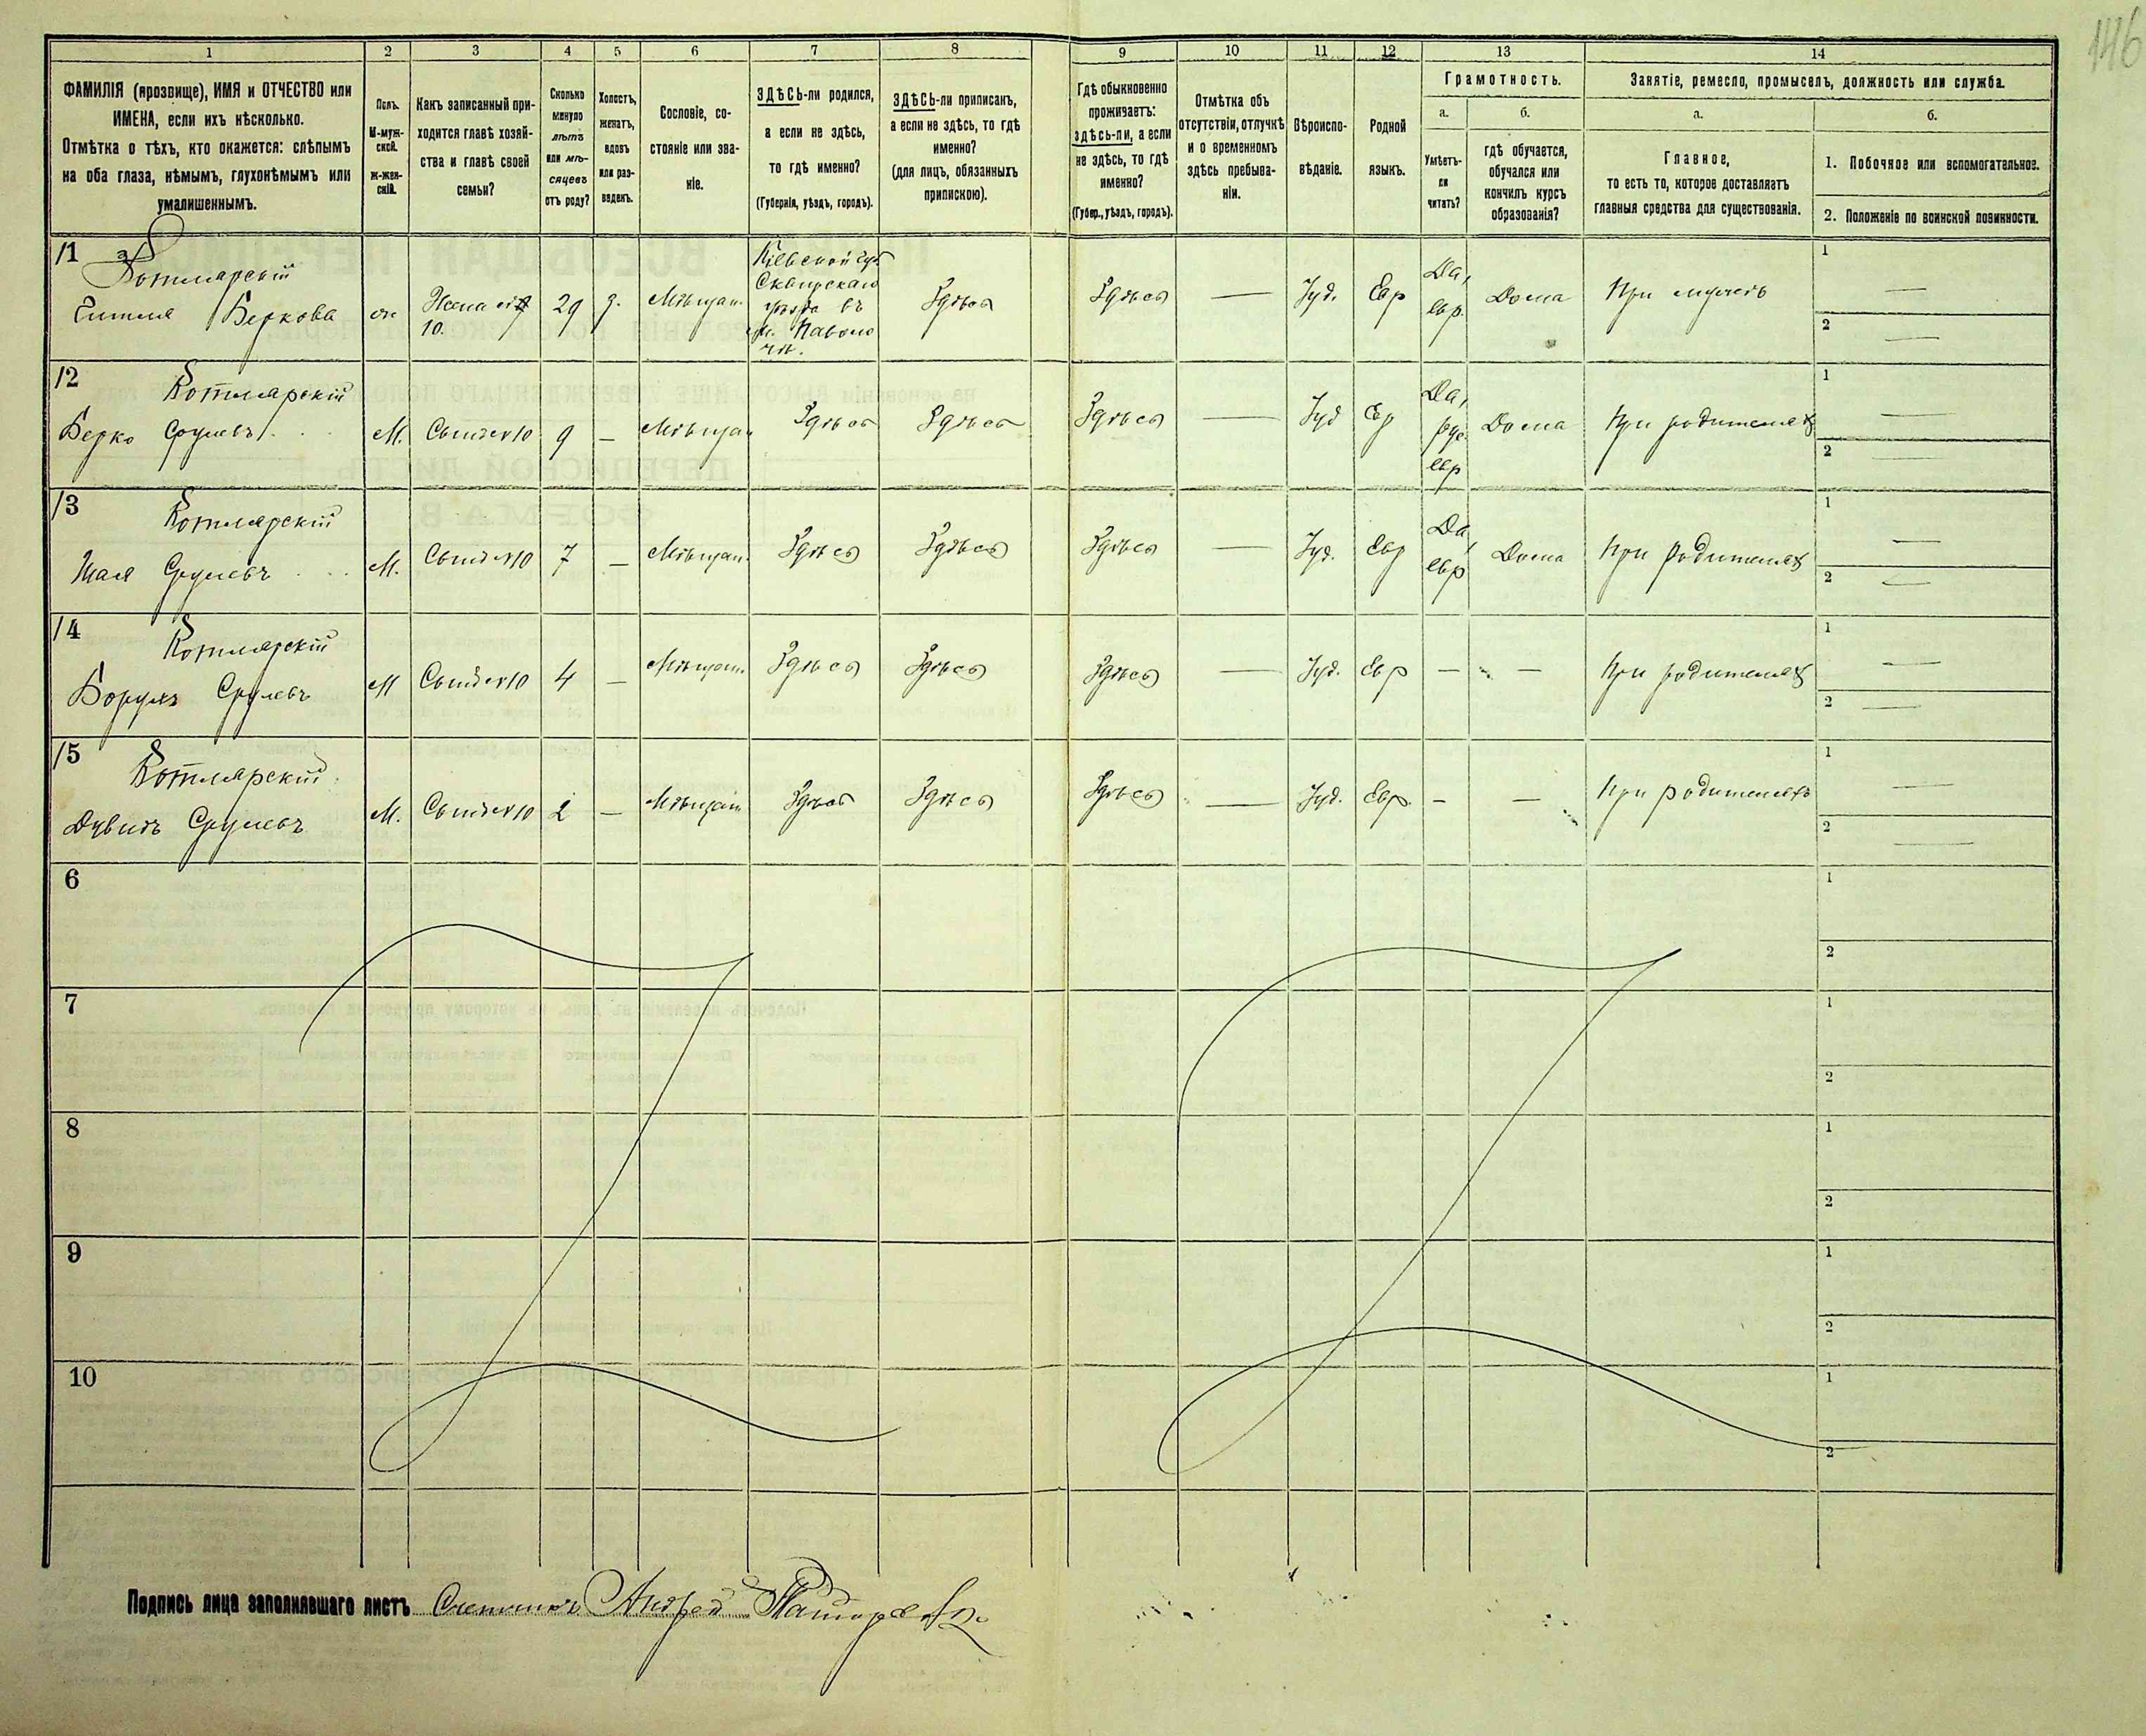 146
1 2 3 4 5 6 7 8 9 10 11 12 13 14
ФАМИЛІЯ (прозвище), ИМЯ и ОТЧЕСТВО или
ИМЕНА, если ихъ нѣсколько.
Отмѣтка о тѣхъ, кто окажется: слѣпымъ
на оба глаза, нѣмымъ, глухонѣмымъ или
умалишеннымъ.
Полъ.
М-муж-
ской.
ж-жен-
скій.
Какъ записанный при-
ходится главѣ хозяй-
ства и главѣ своей
семьи?
Сколько
минуло
лѣтъ
или мѣ-
сяцевъ
отъ роду?
Холостъ,
женатъ,
вдовъ
или раз-
веденъ.
Сословіе, со-
стояніе или зва-
ніе.
ЗДѢСЬ-ли родился,
а если не здѣсь,
то гдѣ именно?
(Губернія, уѣздъ, городъ).
ЗДѢСЬ-ли приписанъ,
а если не здѣсь, то гдѣ
именно?
(для лицъ, обязанныхъ
припискою).
Гдѣ обыкновенно
проживаетъ:
здѣсь-ли, а если
не здѣсь, то гдѣ
именно?
(Губер., уѣздъ, городъ).
Отмѣтка объ
отсутствіи, отлучкѣ
и о временномъ
здѣсь пребыва-
ніи.
Вѣроиспо-
вѣданіе.
Родной
языкъ.
Грамотность.
а.
Умѣетъ-
ли
читать?
б.
гдѣ обучается,
обучался или
кончилъ курсъ
образованія?
Занятіе, ремесло, промыселъ, должность или служба.
а.
Главное,
то есть то, которое доставляетъ
главныя средства для существованія.
б.
1. Побочное или вспомогательное.
2. Положеніе по воинской повинности.
/1
Котлярскій
Беркова
Жена
10.
29
з.
Мѣщан.
Кіевской губ
Сквирскаго
уѣзда въ
м. Паволо
чѣ.
Здѣсь
Здѣсь —
Іуд.
Евр
Да,
евр.
Дома
При мужѣ
1 —
2 —
/2
Котлярскій
Берко Срулевъ
М.
Сынъ №10
9
—
Мѣщан
Здѣсь
Здѣсь
Здѣсь —
Іуд
Евр
Да,
рус.
евр
Дома
При родителяхъ
1 —
2 —
/3
Котлярскій
Шая Срулевъ
М.
Сынъ №10
7
—
Мѣщан.
Здѣсь
Здѣсь
Здѣсь —
Іуд.
Евр
Да,
евр
Дома
При родителяхъ
1 —
2 —
/4
Котлярскій
Борухъ Срулевъ
М
Сынъ №10
4
—
Мѣщан.
Здѣсь
Здѣсь
Здѣсь —
Іуд.
Евр
— —
При родителяхъ
1 —
2 —
/5
Котлярскій
Дувидъ Срулевъ
М.
Сынъ №10
2
—
Мѣщан
Здѣсь
Здѣсь
Здѣсь —
Іуд.
Евр.
— —
При родителяхъ
1 —
2 —
6
1
2
7
1
2
8
1
2
9
1
2
10
1
2
Подпись лица заполнявшаго листъ Счетчикъ Андрей